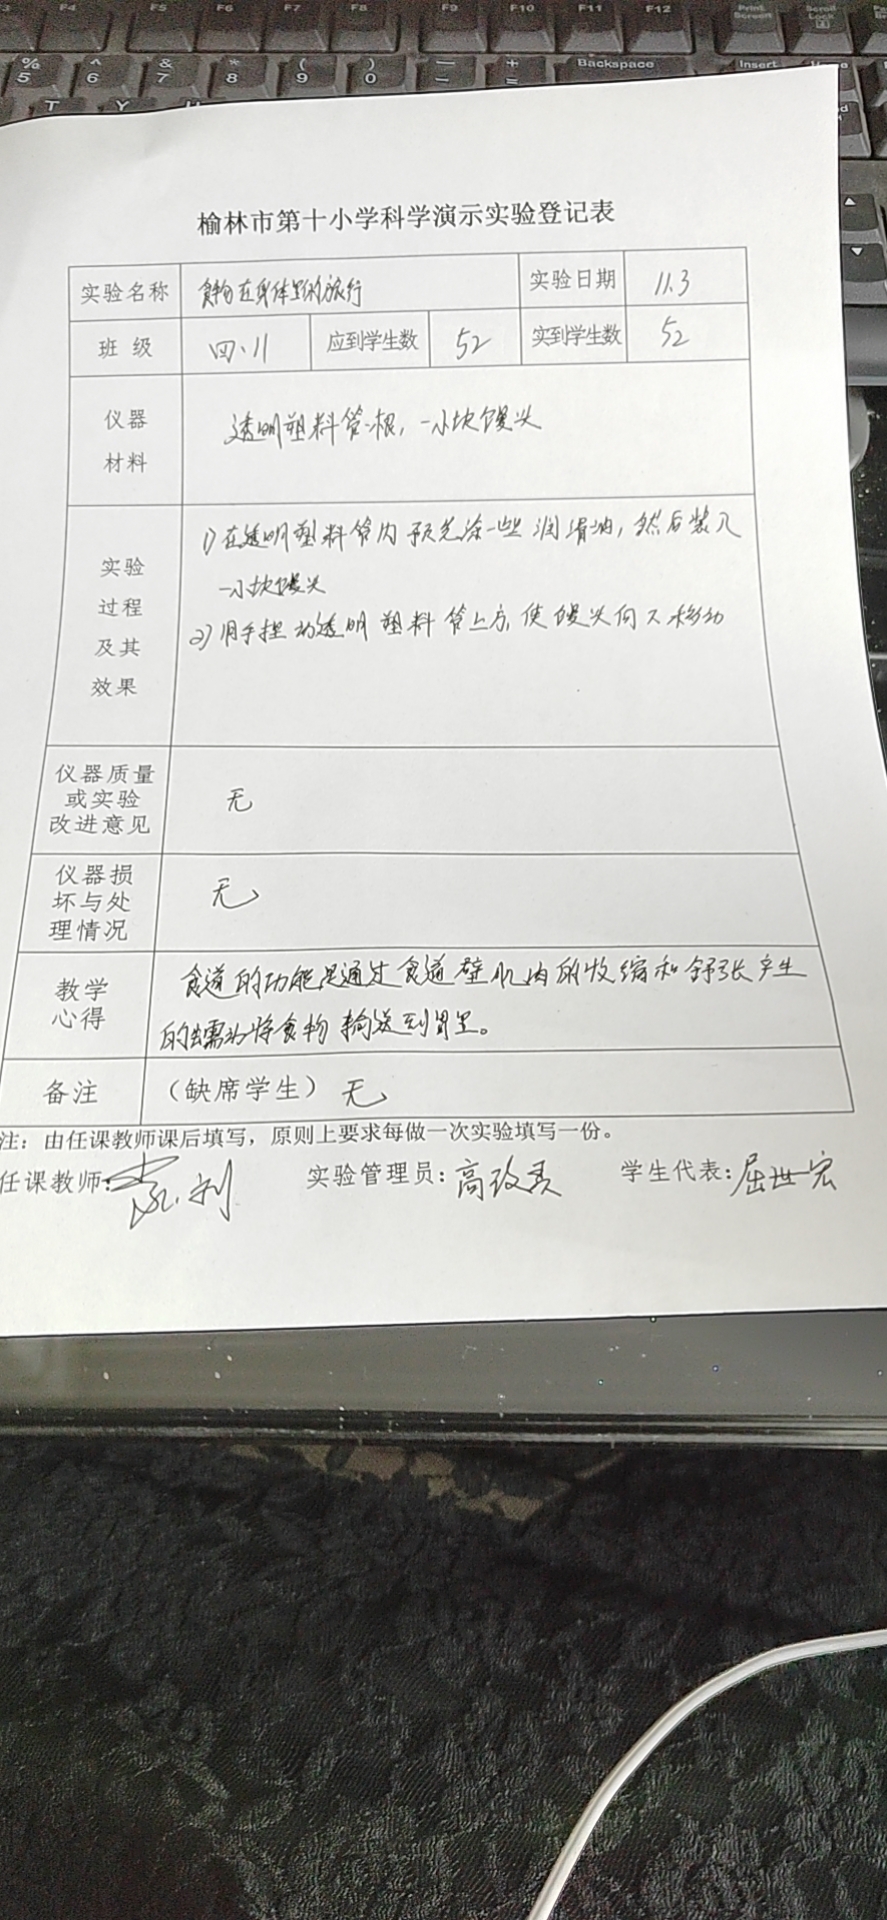 F4 F5 F6 F7 F8 F9 F10 F11 F12 Print Screen Scroll Lock
% 5 ^ 6 & 7 * 8 ( 9 ) 0 — - + = Backspace Insert
T Y
榆林市第十小学科学演示实验登记表
实验名称 食物在身体里的旅行 实验日期 11.3
班 级 四.11 应到学生数 52 实到学生数 52
仪器
材料
透明塑料管一根，一小块馒头
实验
过程
及其
效果
1)在透明塑料管内预先涂一些润滑油，然后装入
一小块馒头
2)用手捏动透明塑料管上方，使馒头向下移动
仪器质量
或实验
改进意见
无
仪器损
坏与处
理情况
无
教学
心得
食道的功能是通过食道壁肌肉的收缩和舒张产生
的蠕动将食物输送到胃里。
备注 （缺席学生） 无
注：由任课教师课后填写，原则上要求每做一次实验填写一份。
任课教师： 实验管理员：高 学生代表：屈世宏